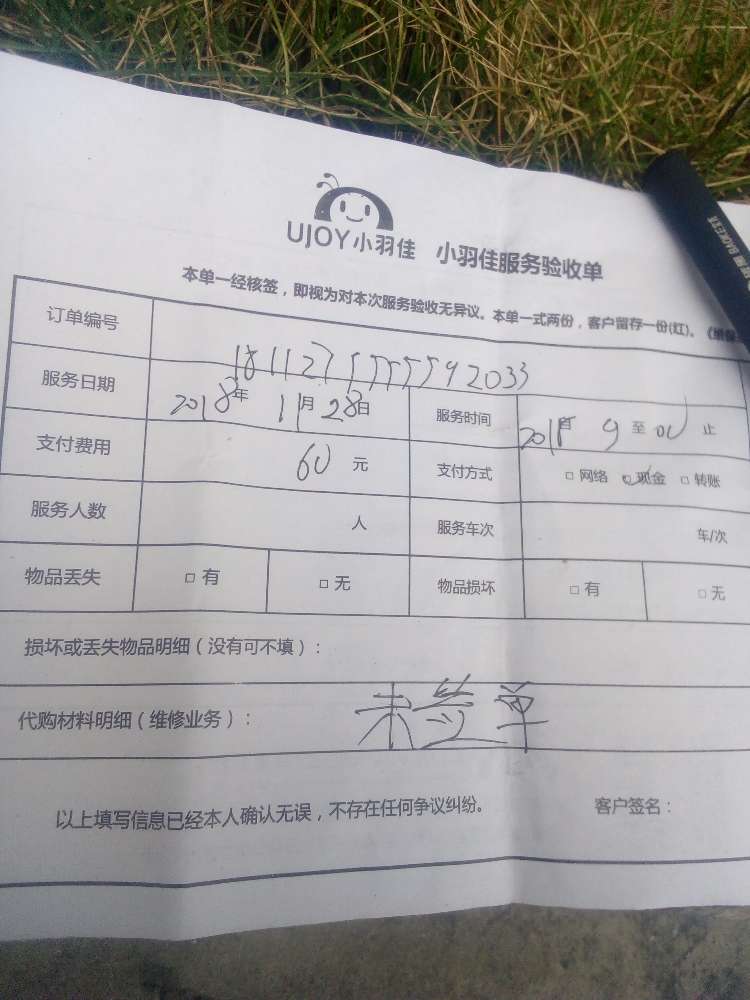 UJOY小羽佳 小羽佳服务验收单
本单一经核签，即视为对本次服务验收无异议。本单一式两份，客户留存一份(红)。
订单编号
服务日期 2018年 11月 28日 服务时间 至 止
支付费用 60 元 支付方式 □ 网络 □ 现金 □ 转账
服务人数 人 服务车次 车/次
物品丢失 □ 有 □ 无 物品损坏 □ 有 □ 无
损坏或丢失物品明细（没有可不填）：
代购材料明细（维修业务）： 未签单
以上填写信息已经本人确认无误，不存在任何争议纠纷。 客户签名：